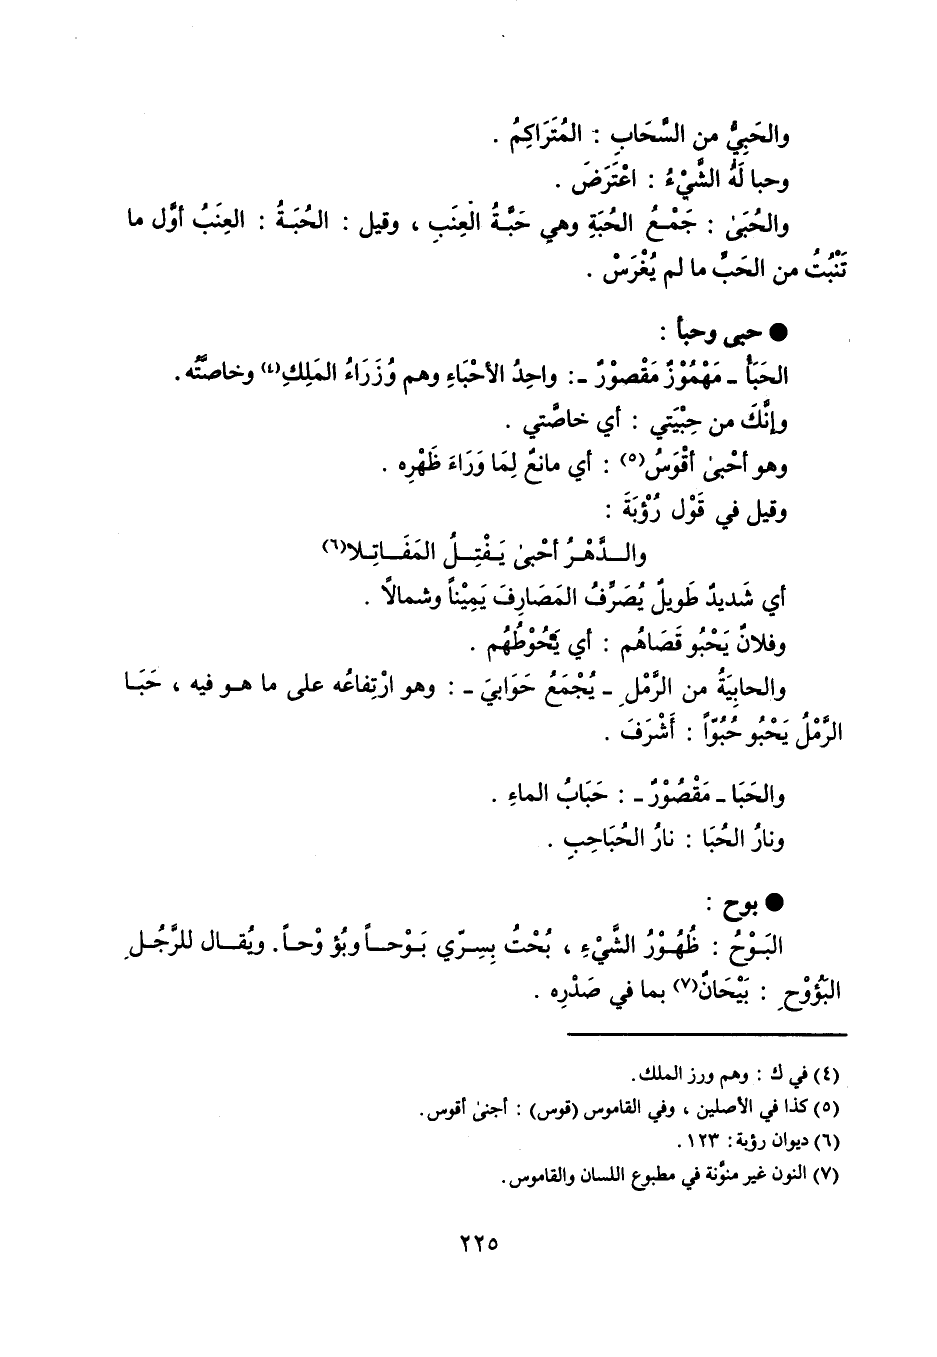 والحَبِيُّ من السَّحَابِ : المُتَرَاكِمُ .
وحبا لَهُ الشَّيْءُ : اعْتَرَضَ .
والحُبَىٰ : جَمْعُ الحُبَةِ وهي حَبَّةُ العِنَبِ ، وقيل : الحُبَةُ : العِنَبُ أوَّل ما
تَنْبُتُ من الحَبِّ ما لم يُغْرَسْ .
● حبى وحبأ :
الحَبَأُ ـ مَهْمُوْزٌ مَقْصورٌ ـ: واحِدُ الأحْبَاءِ وهم وُزَرَاءُ المَلِكِ(٤) وخاصَّتُه .
وإنَّكَ من حِبْيَتي : أي خاصَّتي .
وهو أحْبىٰ أقْوَسُ(٥) : أي مانعٌ لِمَا وَرَاءَ ظَهْرِه .
وقيل في قَوْل رُؤْبَةَ :
والـدَّهْـرُ أحْبىٰ يَـفْتِـلُ المَفَـاتِـلا(٦)
أي شَديدٌ طَويلٌ يُصَرِّفُ المَصَارِفَ يَمِيْناً وشمالاً .
وفلانٌ يَحْبُو قَصَاهُم : أي يَحُوْطُهُم .
والحابِيَةُ من الرَّمْلِ ـ يُجْمَعُ حَوَابيَ ـ : وهو ارْتِفاعُه على ما هـو فيه ، حَبَـا
الرَّمْلُ يَحْبُو حُبُوّاً : أَشْرَفَ .
والحَبَا ـ مَقْصُوْرٌ ـ : حَبَابُ الماءِ .
ونارُ الحُبَا : نارُ الحُبَاحِبِ .
● بوح :
البَـوْحُ : ظُهُـوْرُ الشَّيْءِ ، بُحْتُ بِسِرّي بَـوْحـاً وبُؤوْحـاً. ويُقـال للرَّجُـلِ
البَؤُوْحِ : بَيْحَانٌ(٧) بما في صَدْرِه .
(٤) في ك : وهم ورز الملك.
(٥) كذا في الأصلين ، وفي القاموس (قوس) : أجنىٰ أقوس.
(٦) ديوان رؤبة: ١٢٣ .
(٧) النون غير منوَّنة في مطبوع اللسان والقاموس.
٢٢٥